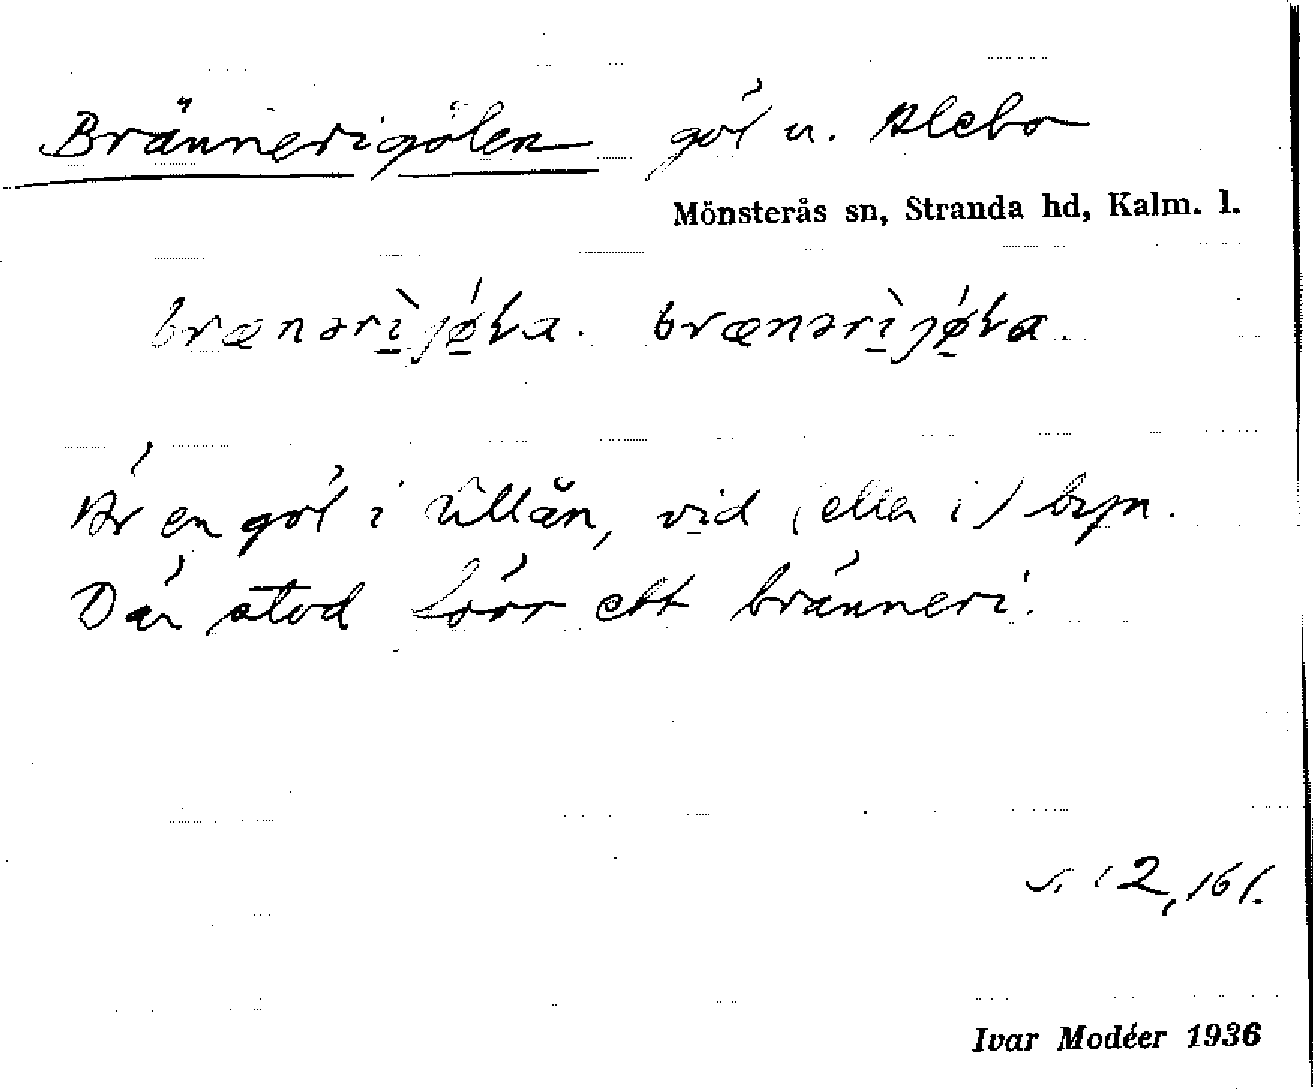 Brännerigölen göl u. Alebo
Mönsterås sn, Stranda hd, Kalm. l.
brænərìjǿla. brænərìjǿla.
Är en göl i Lillån, vid (eller i) byn.
Där stod förr ett bränneri.
s. 12, 16 f.
Ivar Modéer 1936